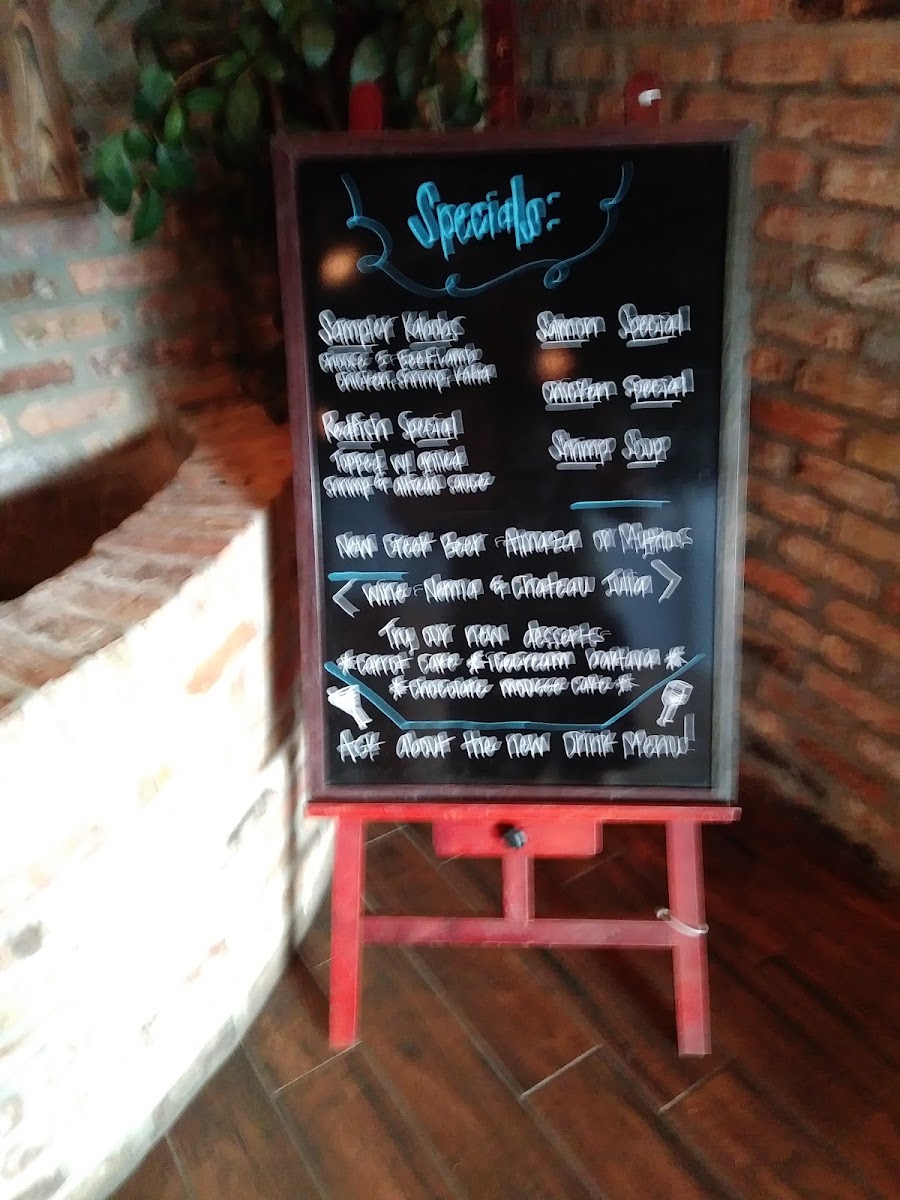 Specials:
Sampler Kabobs
Choose 2 Beef, Lamb
Chicken, Shrimp, Kafta
Redfish Special
Topped w/ grilled
shrimp & alfredo sauce
Salmon Special
Chicken Special
Shrimp Soup
New Greek Beer - Almaza or Mythos
Wine - & Chateau Julia
Try our new desserts
*Carrot Cake *Icecream baklava *
*Chocolate mousse cake *
Ask about the new Drink Menu!